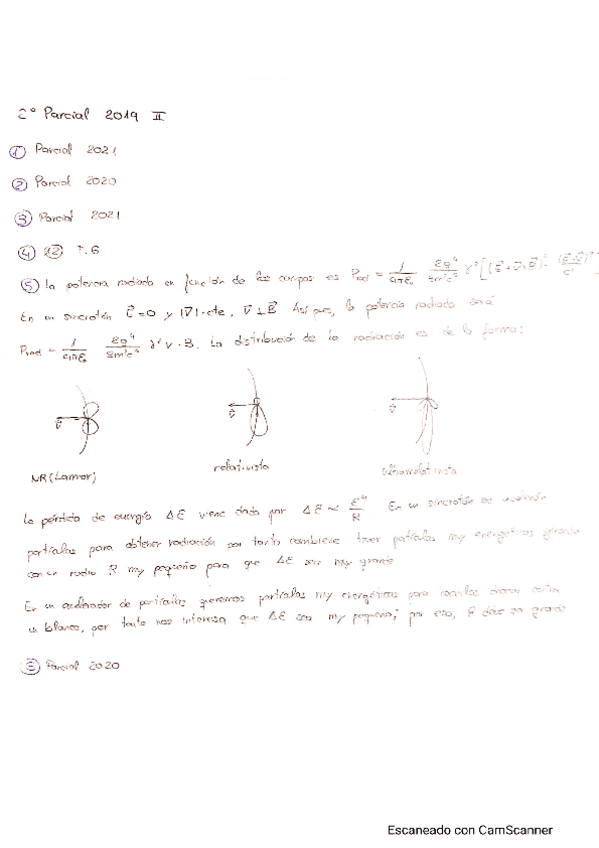 2º Parcial 2019 II
① Parcial 2021
② Parcial 2020
③ Parcial 2021
④ ⑫ T.6
⑤ La potencia radiada en función de los campos es Prad = 1/4πε₀ 2q⁴/3m²c³ γ² [(E⃗ + v⃗×B⃗)² - (E⃗·v⃗)²/c²
En un sincrotón E⃗=0 y |v⃗|=cte, v⃗ ⊥ B⃗ Así que, la potencia radiada será
Prad = 1/4πε₀ γ² v · B. La distribución de la radiación es de la forma:
v⃗ v⃗ v⃗
NR (Lamor) relativista ultrarrelativista
La pérdida de energía Δℰ viene dada por Δℰ ∝ ℰ⁴/R En un sincrotón se aceleran
partículas para obtener radiación por tanto combiene tener partículas my energéticas girando
con un radio R my pequeño para que Δℰ sea muy grande
En un acelerador de partículas queremos partículas my energéticas para chocar contra
un blanco, por tanto nos interesa que Δℰ sea my pequeña; por eso, R debe ser grande
⑥ Parcial 2020
Escaneado con CamScanner